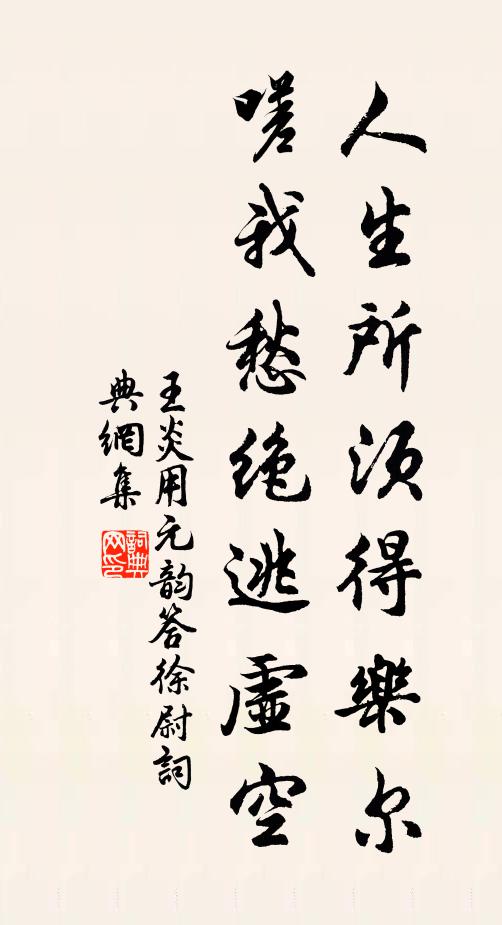 人生所须得樂尔
嗟我愁绝逃虛空
王炎用元韵答徐尉詞
典網集
詞典
网印